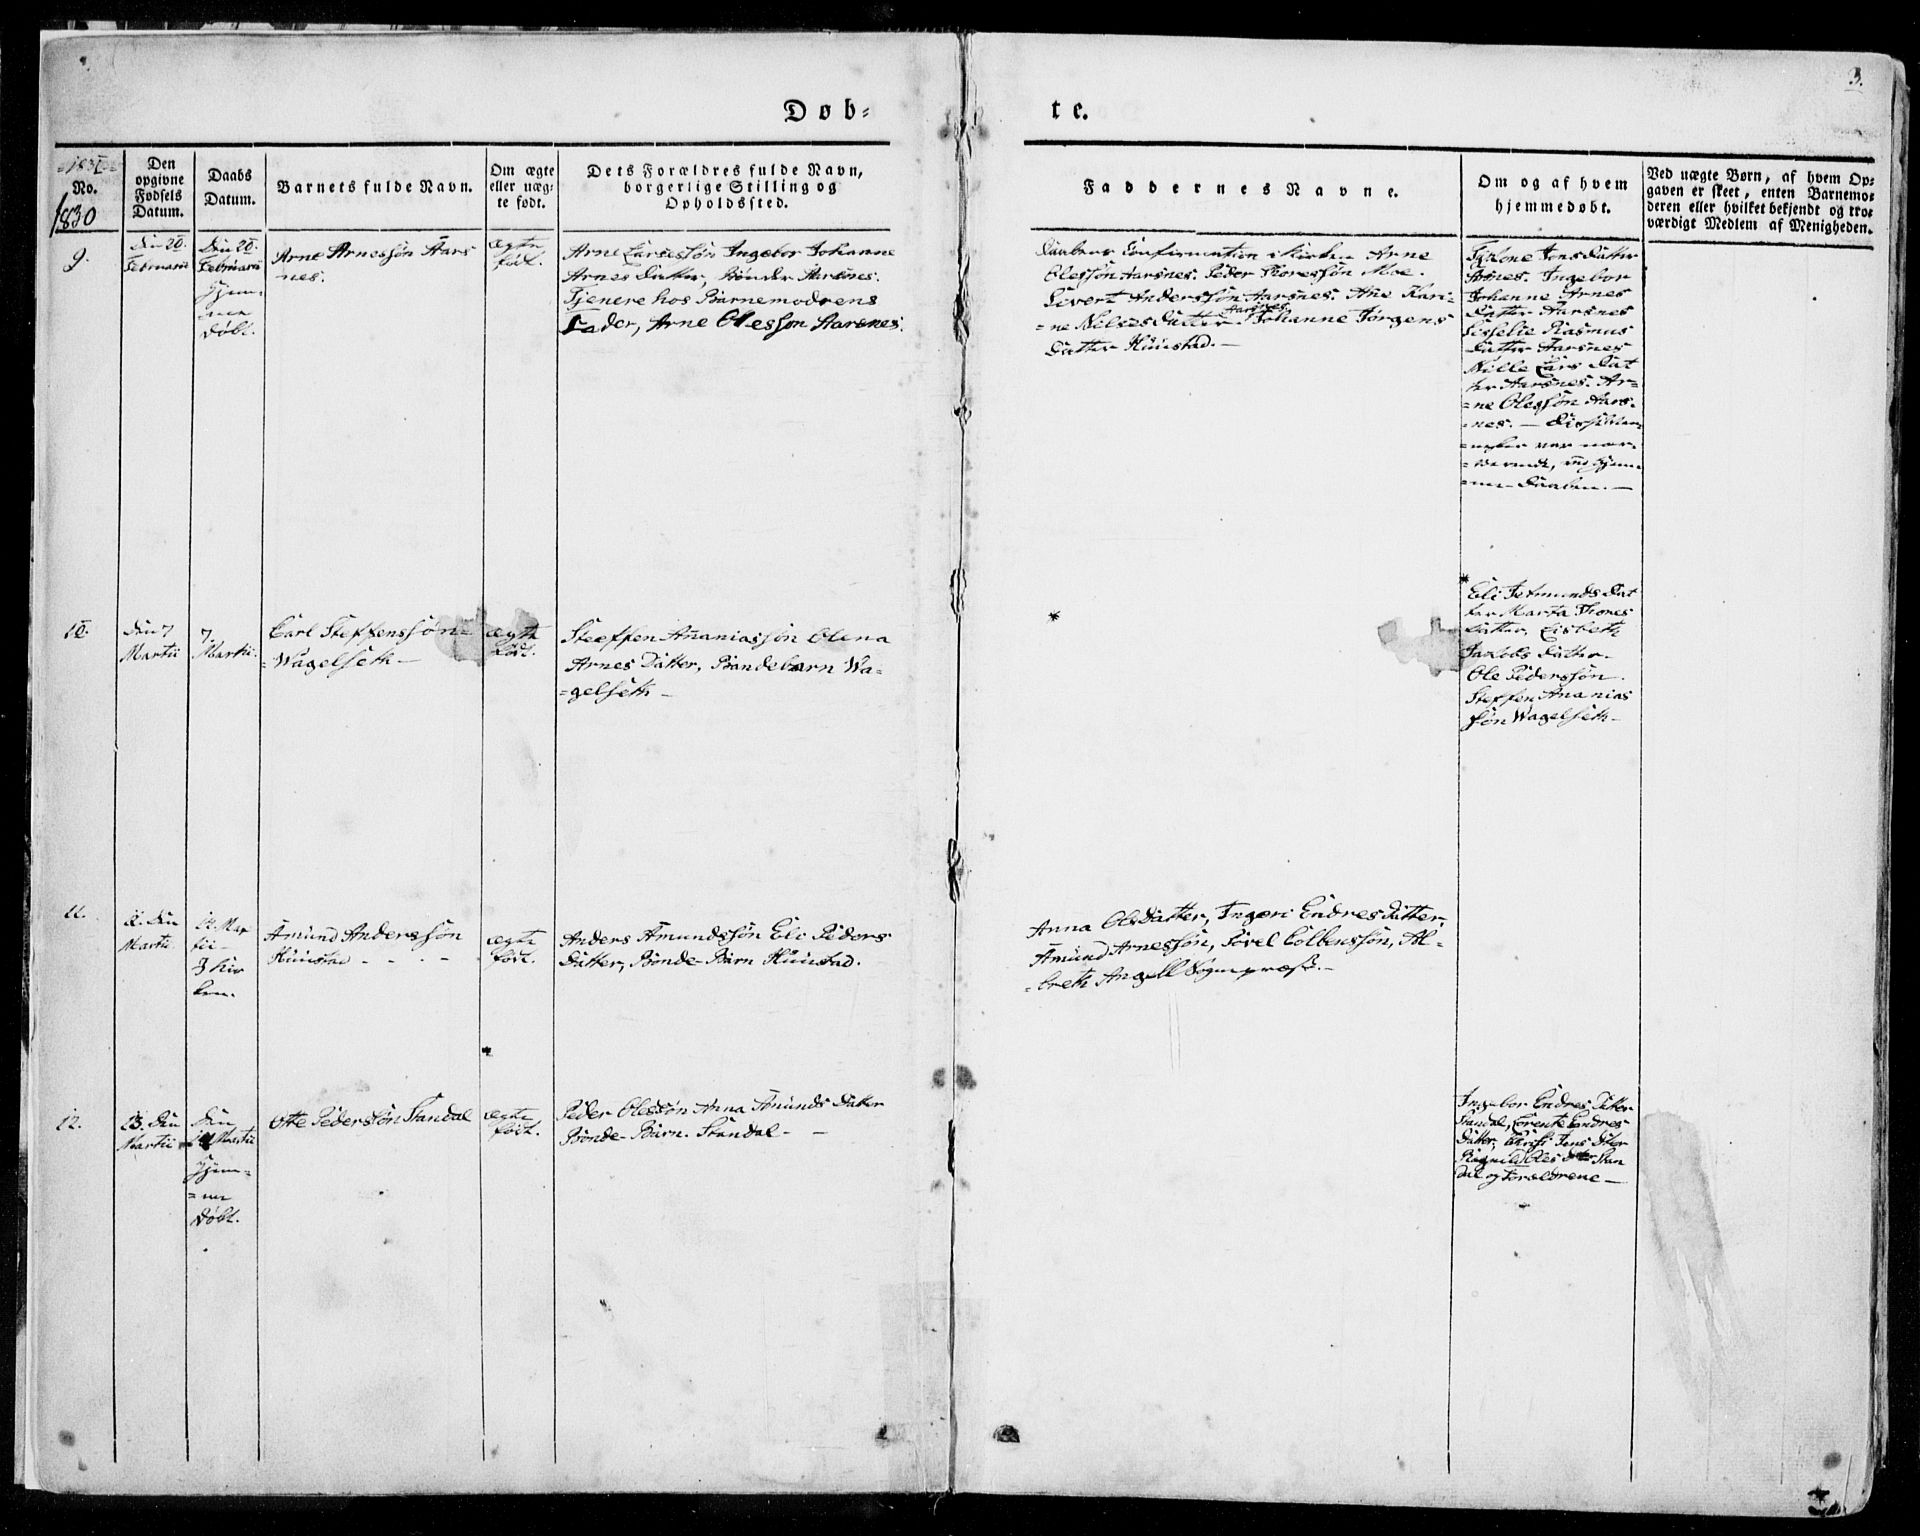 3.
Døb-
te.
1830
No.
1830
Den
opgivne
Fødsels
Datum.
Daabs
Datum.
Barnets fulde Navn.
Om ægte
eller uæg-
te født.
Dets Forældres fulde Navn,
borgerlige Stilling og
Opholdssted.
Faddernes Navne.
Om og af hvem
hjemmedøbt.
Ved uægte Børn, af hvem Op-
gaven er skeet, enten Barnemo-
deren eller hvilket bekjendt og tro-
værdigt Medlem af Menigheden.
9.
Den 20.
Februarii
Den 20.
Februarii
Hjem-
me
døbt.
Arne Arnessøn Aars
nes.
ægte
født.
Arne Larsessøn Ingebor Johanne
Arnes Datter, Bønder Aarsnes.
Tjenere hos Barnemodrens
Fader, Arne Olessøn Aarsnes.
Daabens Confirmation i Kirken Arne
Olessøn Aarsnes. Peder Thoressøn Moe.
Sivert Anderssøn Aarsnes. Ane Kari-
=ne Nelses Datter Aarsnes Johanne Jørgens
Datter Huustad.-
Jens Datter
Aarsnes. Ingebor
Johanne Arnes
Datter Aarsnes
Sisselie Rasmus
Datter Aarsnes
Nille Lars Dat
ter Aarsnes. Ar=
=ne Olessøn Aars-
=nes. - Disse
var nær-
=værende, ved Hjem
=me-Daaben.-
10.
Den 7
Martii
7.
Martii.
Carl Steffenssøn
=Wagelseth-
ægte
født.
Steffen Ananiassøn Olena
Arnes Datter, Bondebarn Wa-
=gelseth-
*
*
Eli Jetmunds Dat
ter Marta Thores
Datter, Lisbeth
Jakobs Datter
Ole Pederssøn.
Steffen Ananias
søn Wagelseth-
11.
Den
Martii
14. Mar
tii-
I Kir
ken.
Amund Anderssøn
Huustad - - . -
ægte
født.
Anders Amundssøn Eli Peders
Datter, Bønde-Barn Huustad.
Anna Ols Datter, Ingeri Endres Datter
Amund Arnessøn, Povel Colbenssøn, Al-
=breth Angell Sognepræst.-
12.
13. Den
Martii
Den
14 Martii
Hjem-
=me
døbt.
Otte Pederssøn Standal
ægte
født.
Peder Olessøn Anna Amunds Datter
Bønde-Barn. Standal- -
Ingebor Endres Datter
Standal, Lorente Endres
Datter. Jens Dater
Ragnild Oles Dater Stan
dal og Forældrene-